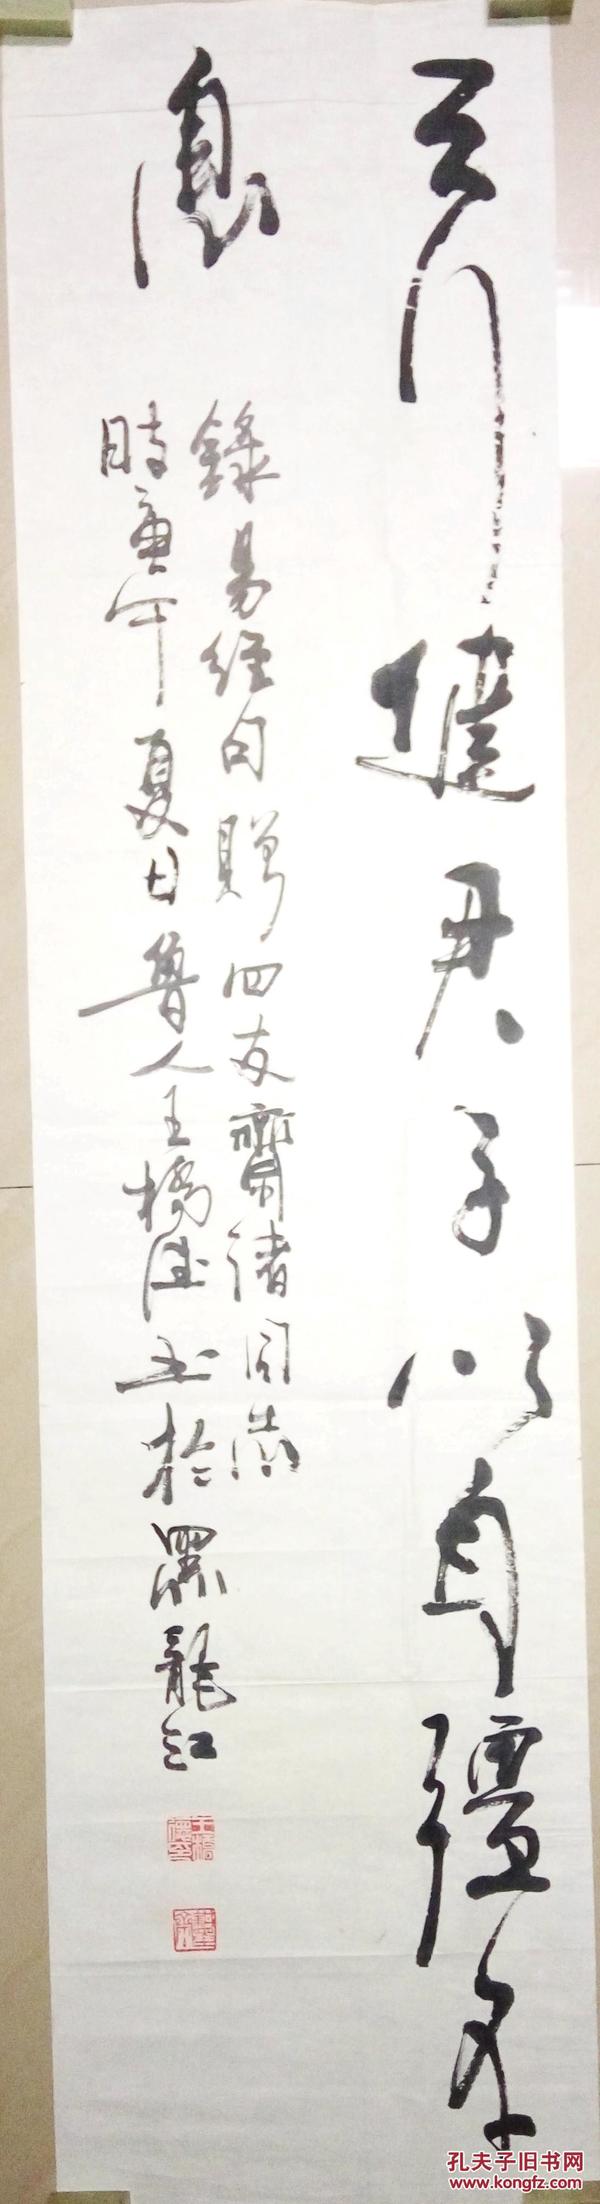 天行健君子以自彊不
息
錄易經句贈四友齋諸同尚
時庚午夏日魯人王橋德书於黑龍江
王橋
孔夫子旧书网
www.kongfz.com